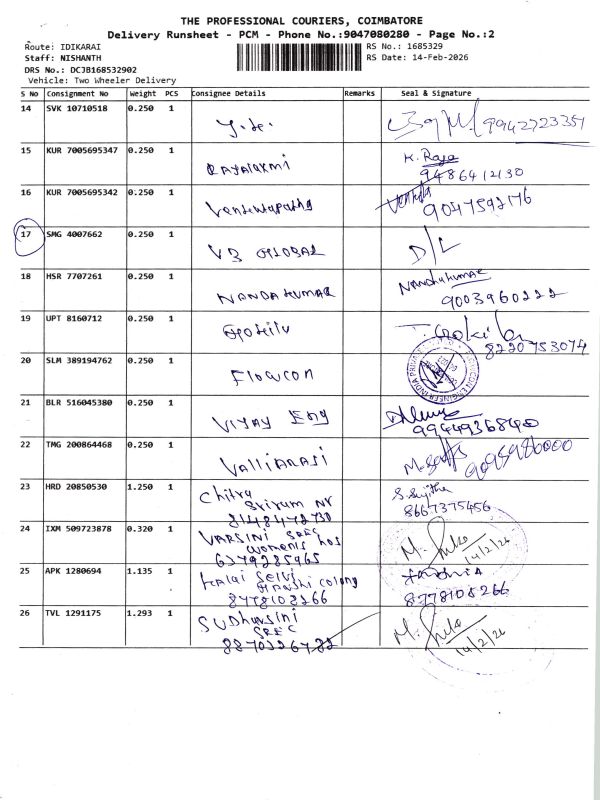 THE PROFESSIONAL COURIERS, COIMBATORE
Delivery Runsheet - PCM - Phone No.:9047080280 - Page No.:2
Route: IDIKARAI
RS No.: 1685329
Staff: NISHANTH
RS Date: 14-Feb-2026
DRS No.: DCJB168532902
Vehicle: Two Wheeler Delivery
S No Consignment No Weight PCS Consignee Details Remarks Seal & Signature
14 SVK 10710518 0.250 1
9942723354
15 KUR 7005695347 0.250 1
Rajalaxmi
K. Raja
9486412130
16 KUR 7005695342 0.250 1
Venkatapathy
Venkata
9047592176
17 SMG 4007662 0.250 1
VB GLOBAL
D/L
18 HSR 7707261 0.250 1
NANDAKUMAR
Nandhakumar
9003960222
19 UPT 8160712 0.250 1
T. Gokila
8220753074
20 SLM 389194762 0.250 1
Flowcon
21 BLR 516045380 0.250 1
VIJAY ENG
9944936840
22 TMG 200864468 0.250 1
Valliarasi
23 HRD 20850530 1.250 1
Chitra
Sriram NR
8148472730
S. Sujitha
8667375456
24 IXM 509723878 0.320 1
VARSINI SREC
Womens hos
6379285965
14/2/26
25 APK 1280694 1.135 1
Kalai Selvi
colony
8778108266
8778108266
26 TVL 1291175 1.293 1
SUDharsini
SREC
8870226782
14/2/26